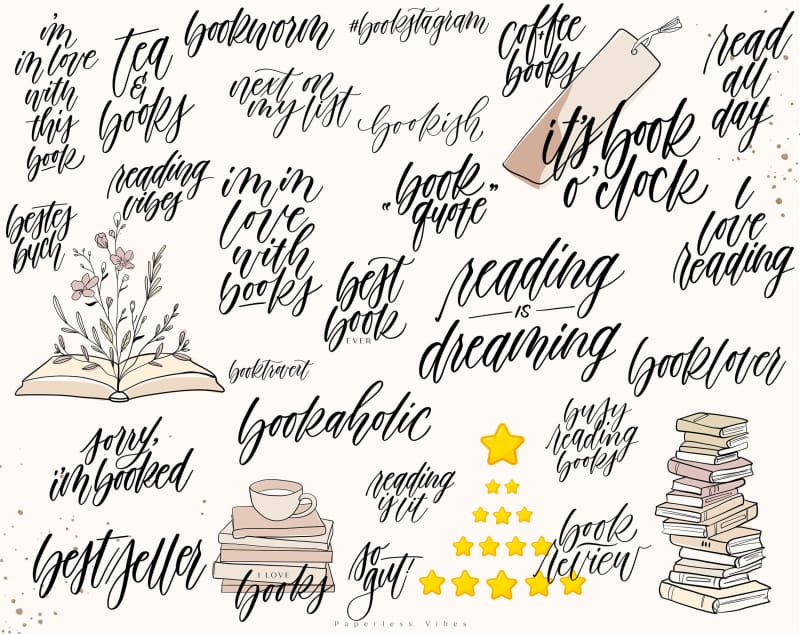 i'm
in love
with
this
book
tea
&
books
bookworm
#bookstagram
coffee
+
books
read
all
day
next on
my list
bookish
it's book
o'clock
reading
vibes
i'm in
love
with
books
"book
quote"
i
love
reading
bestes
buch
best
book
EVER
reading
IS
dreaming
booklover
booktrovert
bookaholic
busy
reading
books
sorry,
i'm booked
reading
is lit
book
review
bestseller
I LOVE
books
so
gut!
Paperless Vibes